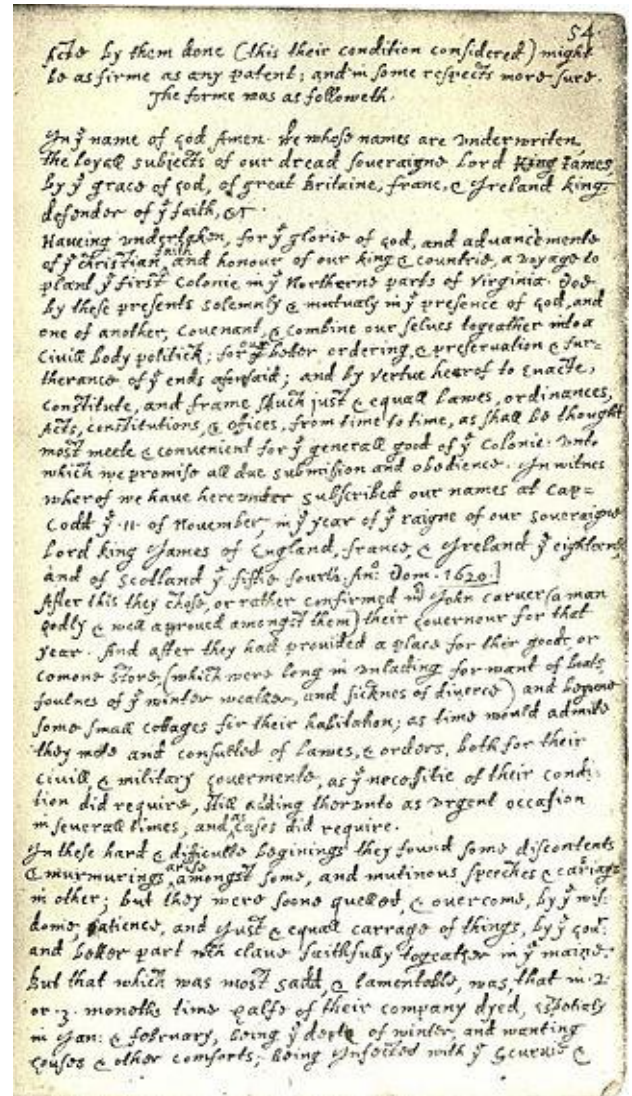 54
Acts by them done (this their condition considered) might
be as firme as any patent; and in some respects more sure.
The forme was as followeth.
In yͤ name of god Amen. We whose names are underwriten,
the loyall subjects of our dread soveraigne Lord King James,
by yͤ grace of god, of great Britaine, franc, & Ireland king,
defender of yͤ faith, &c.
Haveing undertaken, for yͤ glorie of god, and advancemente
of yͤ christian faith and honour of our king & countrie, a voyage to
plant yͤ first colonie in yͤ Northerne parts of Virginia. Doe
by these presents solemnly & mutualy in yͤ presence of god, and
one of another, covenant, & combine our selves togeather into a
civill body politick; for our better ordering, & preservation & fur=
therance of yͤ ends aforesaid; and by vertue hearof to enacte,
constitute, and frame such just & equall lawes, ordinances,
Acts, constitutions, & offices, from time to time, as shall be thought
most meete & convenient for yͤ generall good of yͤ Colonie: unto
which we promise all due submission and obedience. In witnes
wherof we have hereunder subscribed our names at Cap=
Codd yͤ .11. of November, in yͤ year of yͤ raigne of our soveraigne
Lord king James of England, france, & Ireland yͤ eighteenth
and of Scotland yͤ fiftie fourth. Anͦ: Dom. 1620.]
After this they chose, or rather confirmed mͬ John carver (a man
godly & well approved amongst them) their governour for that
year. And after they had provided a place for their goods, or
comone store, (which were long in unlading for want of boats,
foulnes of yͤ winter weather, and sicknes of diverce) and begune
some small cottages for their habitation; as time would admitte
they mette and consulted of lawes, & orders, both for their
civill, & military govermente, as yͤ necessitie of their condi=
tion did require, still adding therunto as urgent occasion
in severall times, and as cases did require.
In these hard & difficulte beginings they found some discontents
& murmurings arise amongst some, and mutinous speeches & cariags
in other; but they were soone quelled, & overcome, by yͤ wis=
dome, patience, and just & equall carrage of things, by yͤ Govͬ:
and better part wͨh clave faithfully togeather in yͤ maine.
But that which was most sadd, & lamentable, was, that in .2.
or .3. moneths time halfe of their company dyed, espetialy
in Jan: & february, being yͤ depth of winter, and wanting
houses & other comforts; being Infected with yͤ Scurvie &